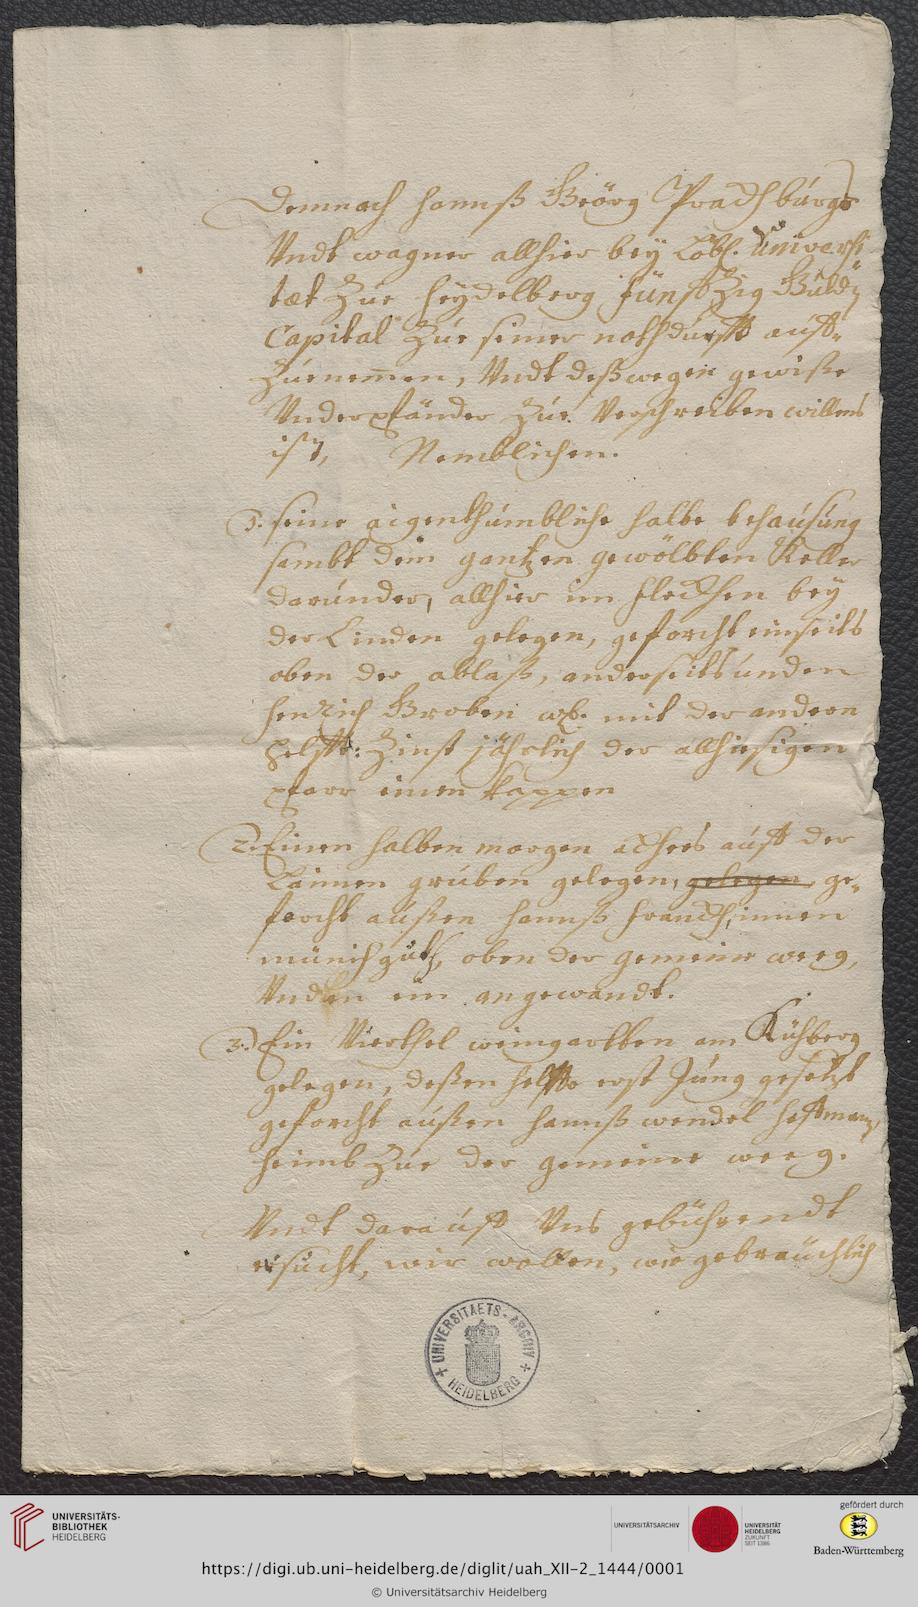 Demnach Hannß Geörg Pracht burger
Undt wagner allhier bey Löbl. Universi
tæt Zue Heydelberg fünffzig Guld.
Capital Zue seiner nothdurfft auff-
Zuenemmen, Undt deßwegen gewiße
Underpfänder Zue Verschreiben willens
ist, Nemblichen.
1. seine aigenthümbliche halbe behausung
sambt dem gantzen gewölbten Keller
darunder, allhier im Flecken bey
der Linden gelegen, geforcht einseits
oben der ablaß, anderseits unden
Henrich Groben mit der andern
helffte: Zinst jährlich der allhiesigen
pfarr einen kappen
2. Einen halben morgen ackers auff der
Laimen gruben gelegen, gelegen, ge-
forcht außen Hannß Franck, innen
münch guth, oben der gemeine weeg,
Unden ein angewandt.
3. Ein Vierthel weingartten am Kühberg
gelegen, deßen helffte erst Jung gesetzt
geforcht außen Hannß wendel
heimb Zue der gemeine weeg.
Undt darauff Uns gebührendt
ersucht, wir wollen, wie gebräuchlich
UNIVERSITAETS-ARCHIV
HEIDELBERG
UNIVERSITÄTS-
BIBLIOTHEK
HEIDELBERG
UNIVERSITÄTSARCHIV
UNIVERSITÄT
HEIDELBERG
ZUKUNFT
SEIT 1386
gefördert durch
Baden-Württemberg
https://digi.ub.uni-heidelberg.de/diglit/uah_XII-2_1444/0001
© Universitätsarchiv Heidelberg